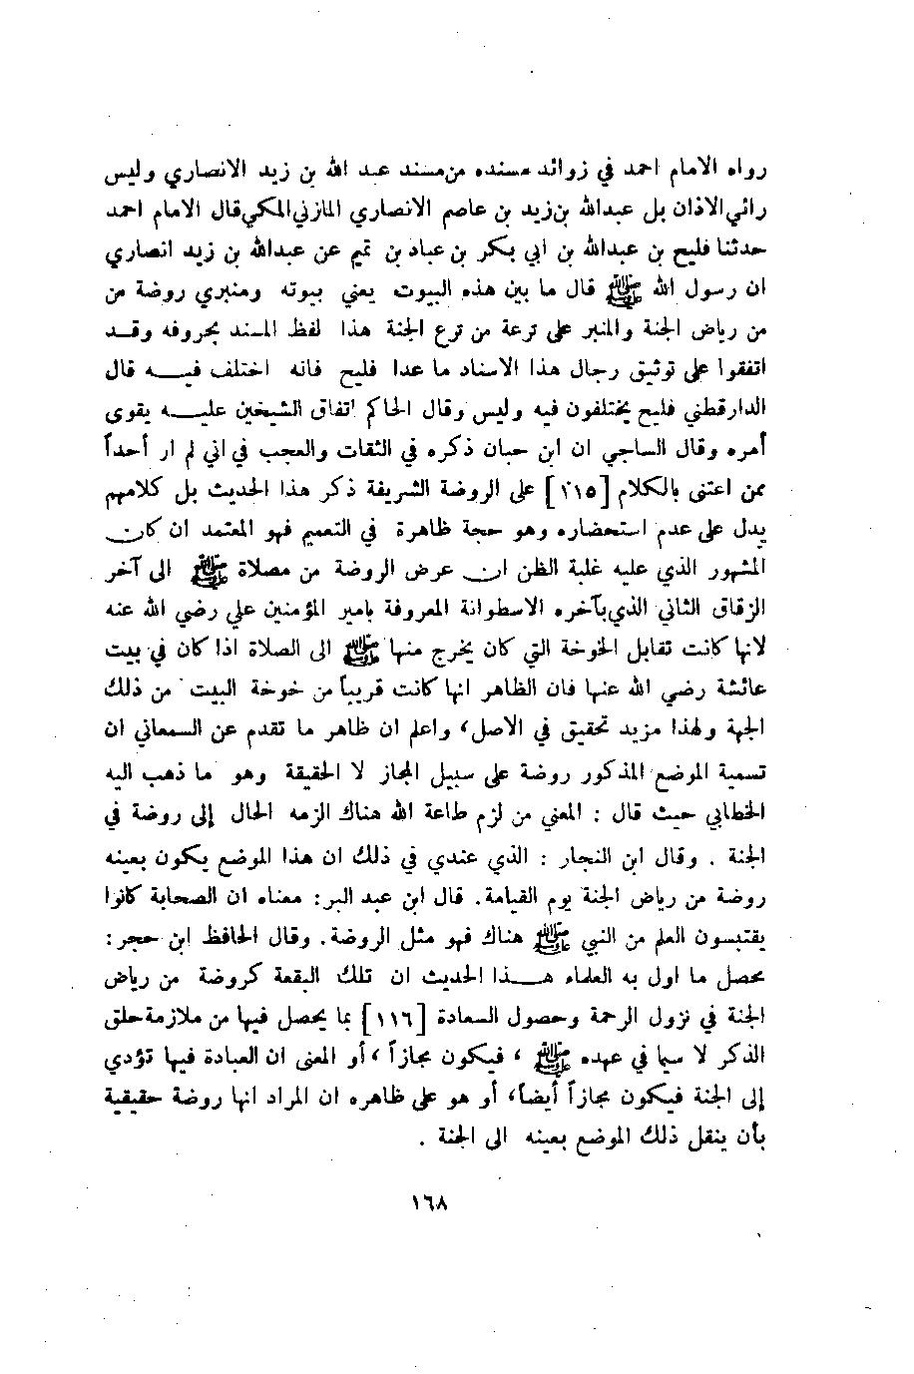 رواه الامام احمد في زوائد مسنده من مسند عبد الله بن زيد الانصاري وليس
رائي الاذان بل عبدالله بن زيد بن عاصم الانصاري المازني المكي قال الامام احمد
حدثنا فليح بن عبدالله بن ابي بكر بن عباد بن تميم عن عبدالله بن زيد انصاري
ان رسول الله ﷺ قال ما بين هذه البيوت يعني بيوته ومنبري روضة من
من رياض الجنة والمنبر على ترعة من ترع الجنة هذا لفظ المسند بحروفه وقد
اتفقوا على توثيق رجال هذا الاسناد ما عدا فليح فانه اختلف فيه قال
الدارقطني فليح يختلفون فيه وليس وقال الحاكم اتفاق الشيخين عليه يقوى
أمره وقال الساجي ان ابن حبان ذكره في الثقات والعجب في اني لم ار أحداً
ممن اعتنى بالكلام [١١٥] على الروضة الشريفة ذكر هذا الحديث بل كلامهم
يدل على عدم استحضاره وهو حجة ظاهرة في التعميم فهو المعتمد ان كان
المشهور الذي عليه غلبة الظن ان عرض الروضة من مصلاة ﷺ الى آخر
الزقاق الثاني الذي بآخره الاسطوانة المعروفة بامير المؤمنين علي رضي الله عنه
لانها كانت تقابل الخوخة التي كان يخرج منها ﷺ الى الصلاة اذا كان في بيت
عائشة رضي الله عنها فان الظاهر انها كانت قريباً من خوخة البيت من ذلك
الجهة ولهذا مزيد تحقيق في الاصل، واعلم ان ظاهر ما تقدم عن السمعاني ان
تسمية الموضع المذكور روضة على سبيل المجاز لا الحقيقة وهو ما ذهب اليه
الخطابي حيث قال : المعني من لزم طاعة الله هناك الزمه الحال إلى روضة في
الجنة . وقال ابن النجار : الذي عندي في ذلك ان هذا الموضع يكون بعينه
روضة من رياض الجنة يوم القيامة. قال ابن عبد البر: معناه ان الصحابة كانوا
يقتبسون العلم من النبي ﷺ هناك فهو مثل الروضة. وقال الحافظ ابن حجر:
محصل ما اول به العلماء هذا الحديث ان تلك البقعة كروضة من رياض
الجنة في نزول الرحمة وحصول السعادة [١١٦] بما يحصل فيها من ملازمة حلق
الذكر لا سيما في عهده ﷺ ، فيكون مجازاً ، أو المعنى ان العبادة فيها تؤدي
إلى الجنة فيكون مجازاً أيضاً، أو هو على ظاهره ان المراد انها روضة حقيقية
بأن ينقل ذلك الموضع بعينه الى الجنة .
١٦٨